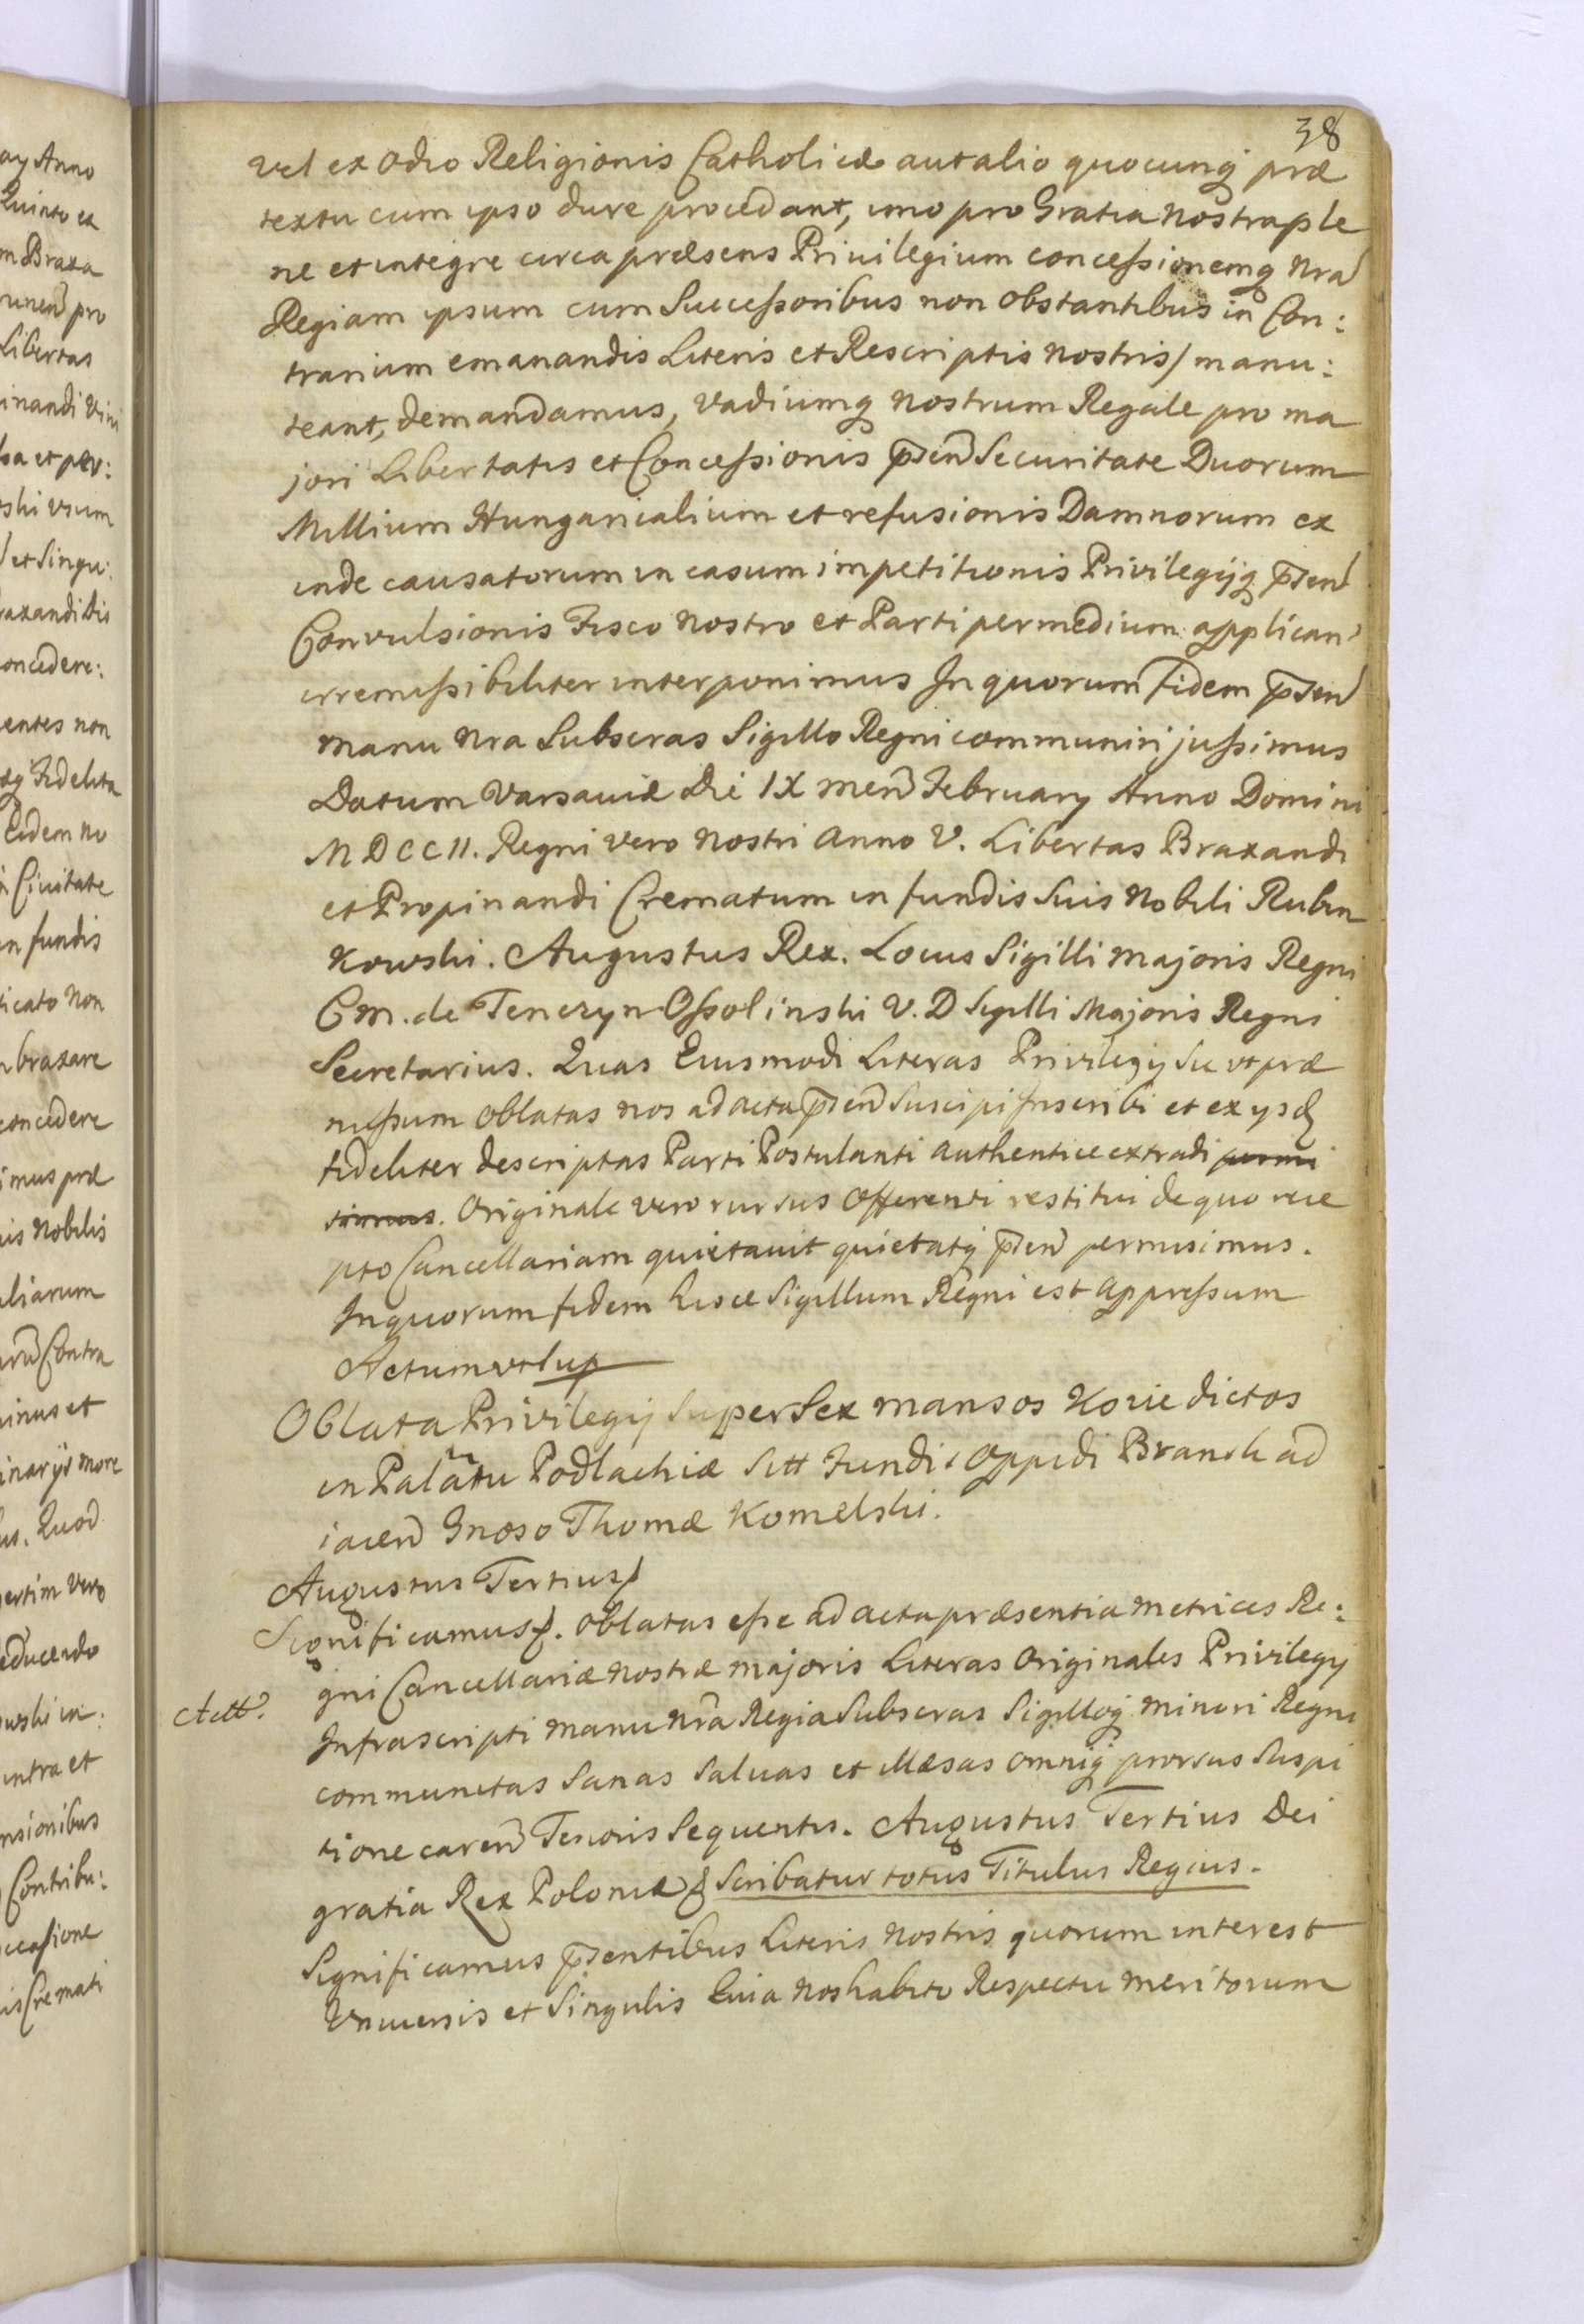 38
vel ex odio Religionis Catholicæ aut alio quocunq præ
textu cum ipso dure procedant, imo pro Gratia nostra ple
ne et integre circa præsens Privilegium concessionemq nra
Regiam ipsum cum Successoribus non obstantibus in Con:
trarium emanandis Literis et Rescriptis nostris/ manu:
teant, demandamus, vadiumq nostrum Regale pro ma
jori Libertatis et Concessionis psen Securitate Duorum
Millium Hungaricalium et refusionis Damnorum ex
inde causatorum in casum impetitionis Privilegijq psen
Convulsionis Fisco nostro et Parti per medium applican
irremissibiliter interponimus In quorum Fidem psen
manu nra Subscras Sigillo Regni communiri jussimus
Datum Varsaviæ Die IX men February Anno Domini
MDCCII. Regni vero nostri Anno V. Libertas Braxandi
et Propinandi Crematum in fundis Suis Nobili Rubin
kowski. Augustus Rex. Locus Sigilli majoris Regni
C m. de Tenczyn Ossolinski V. D Sigilli Majoris Regni
Secretarius. Quas Eiusmodi Literas Privilegij Sic ut præ
missum oblatas nos ad acta psen Suscipi Inscribi et ex ysd
fideliter descriptas Parti Postulanti authentice extradi permi
simus. Originale vero rursus Offerenti restitui de quo rece
pto Cancellariam quietavit quietatq psen permisimus.
In quorum fidem hisce Sigillum Regni est appressum
Actum ut sup
Oblata Privilegij Super Sex mansos Korie dictos
in Palatu Podlachiæ Sitt Fundis Oppidi Bransk ad
iacen Gnoso Thomæ Komelski.
Augustus Tertius
Significamus. Oblatas esse ad acta præsentia metrices Re:
gni Cancellariæ nostræ majoris Literas Originales Privilegy
Infrascripti manu nra Regia Subscras Sigilloq minori Regni
communitas Sanas Salvas et illæsas omniq prorsus Suspi
tione caren Tenoris Sequentis. Augustus Tertius Dei
gratia Rex Poloniæ & Scribatur totus Titulus Regius.
Significamus psentibus Literis nostris quorum interest
Universis et Singulis Quia nos habito Respectu meritorum